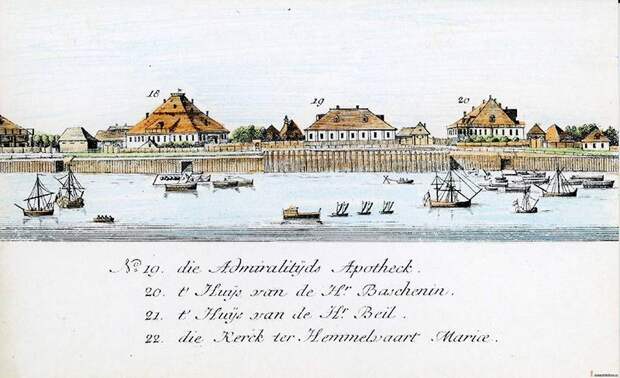 18 19 20
No. 19. die Admiralitÿds Apotheck.
20. t' Huÿs van de Hr. Baschenin.
21. t' Huÿs van de Hr. Beil.
22. die Kerck ter Hemmelvaart Mariæ.